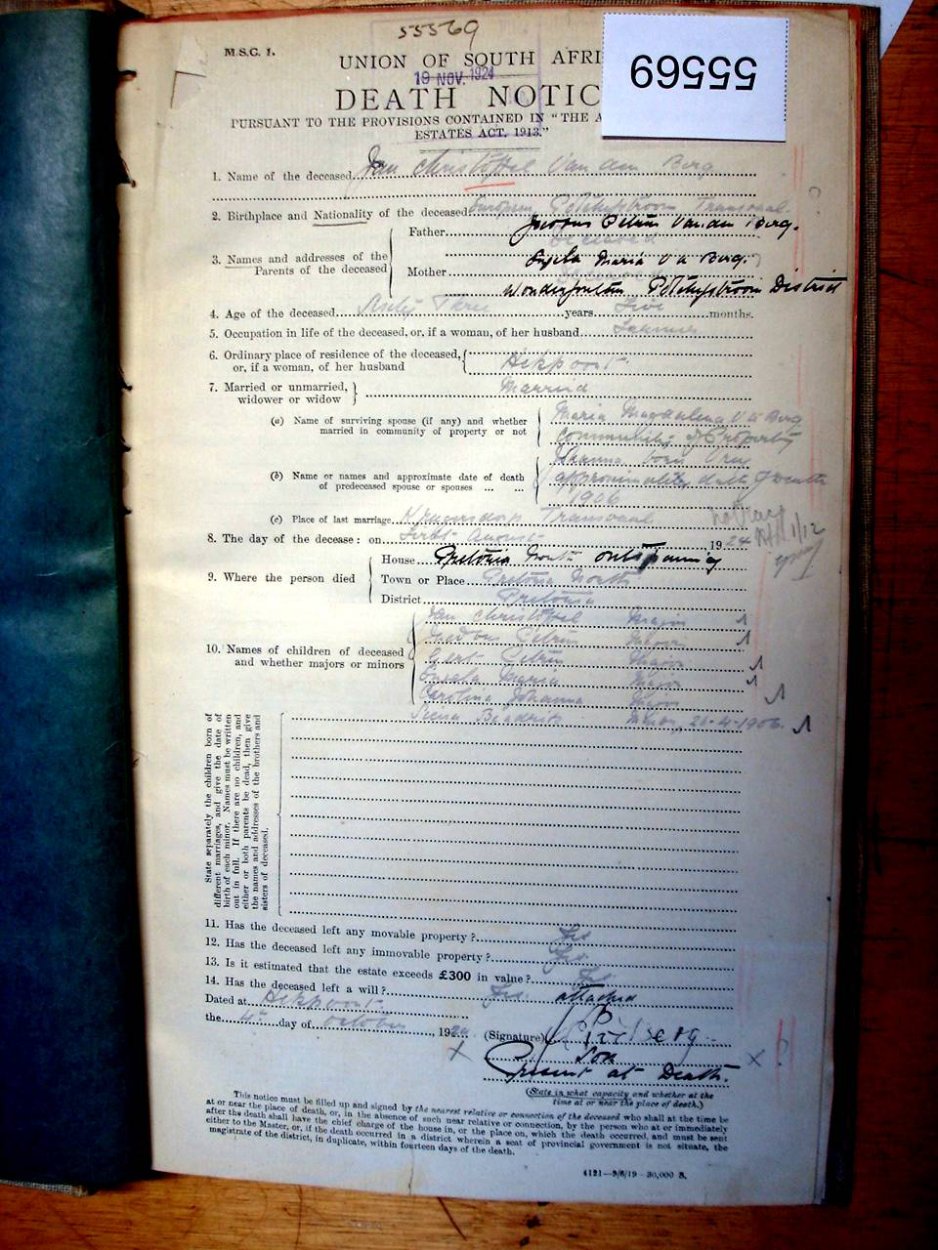 55569
M.S.C. 1.
UNION OF SOUTH AFRI
19 NOV. 1924
55569
DEATH NOTIC
PURSUANT TO THE PROVISIONS CONTAINED IN "THE A
ESTATES ACT, 1913."
1. Name of the deceased Jan Christoffel Van den Berg
2. Birthplace and Nationality of the deceased European Potchefstroom Transvaal
3. Names and addresses of the Parents of the deceased
Father Jacobus Petrus Van den Berg.
deceased
Mother Maria v d Berg.
Wonderfontein Potchefstroom District
4. Age of the deceased Sixty Three years Five months.
5. Occupation in life of the deceased, or, if a woman, of her husband Farmer
6. Ordinary place of residence of the deceased, or, if a woman, of her husband Hekpoort
7. Married or unmarried, widower or widow Married
(a) Name of surviving spouse (if any) and whether married in community of property or not
Maria Magdalena V d Berg
Community of Property
(b) Name or names and approximate date of death of predeceased spouse or spouses ... ...
born
approximately date of death
1906
(c) Place of last marriage Krugersdorp Transvaal
8. The day of the decease: on First August 1924
9. Where the person died
House Pretoria North outspanning
Town or Place Pretoria North
District Pretoria
10. Names of children of deceased and whether majors or minors
Jan Christoffel Major
Jacobus Petrus Major
Gert Petrus Major
Maria Major
Carolina Johanna Major
Minor 21-4-1906.
State separately the children born of
different marriages, and give the date of
birth of each minor. Names must be written
out in full. If there are no children, and
either or both parents be dead, then give
the names and addresses of the brothers and
sisters of deceased.
11. Has the deceased left any movable property? Yes
12. Has the deceased left any immovable property? Yes
13. Is it estimated that the estate exceeds £300 in value? Yes
14. Has the deceased left a will? Yes attached
Dated at Hekpoort
the 4th day of October 1924
(Signature)
Son
Present at Death.
(State in what capacity and whether at the
time at or near the place of death.)
This notice must be filled up and signed by the nearest relative or connection of the deceased who shall at the time be
at or near the place of death, or, in the absence of such near relative or connection, by the person who at or immediately
after the death shall have the chief charge of the house in, or the place on, which the death occurred, and must be sent
either to the Master, or, if the death occurred in a district wherein a seat of provincial government is not situate, the
magistrate of the district, in duplicate, within fourteen days of the death.
4121—9/8/19—30,000 S.